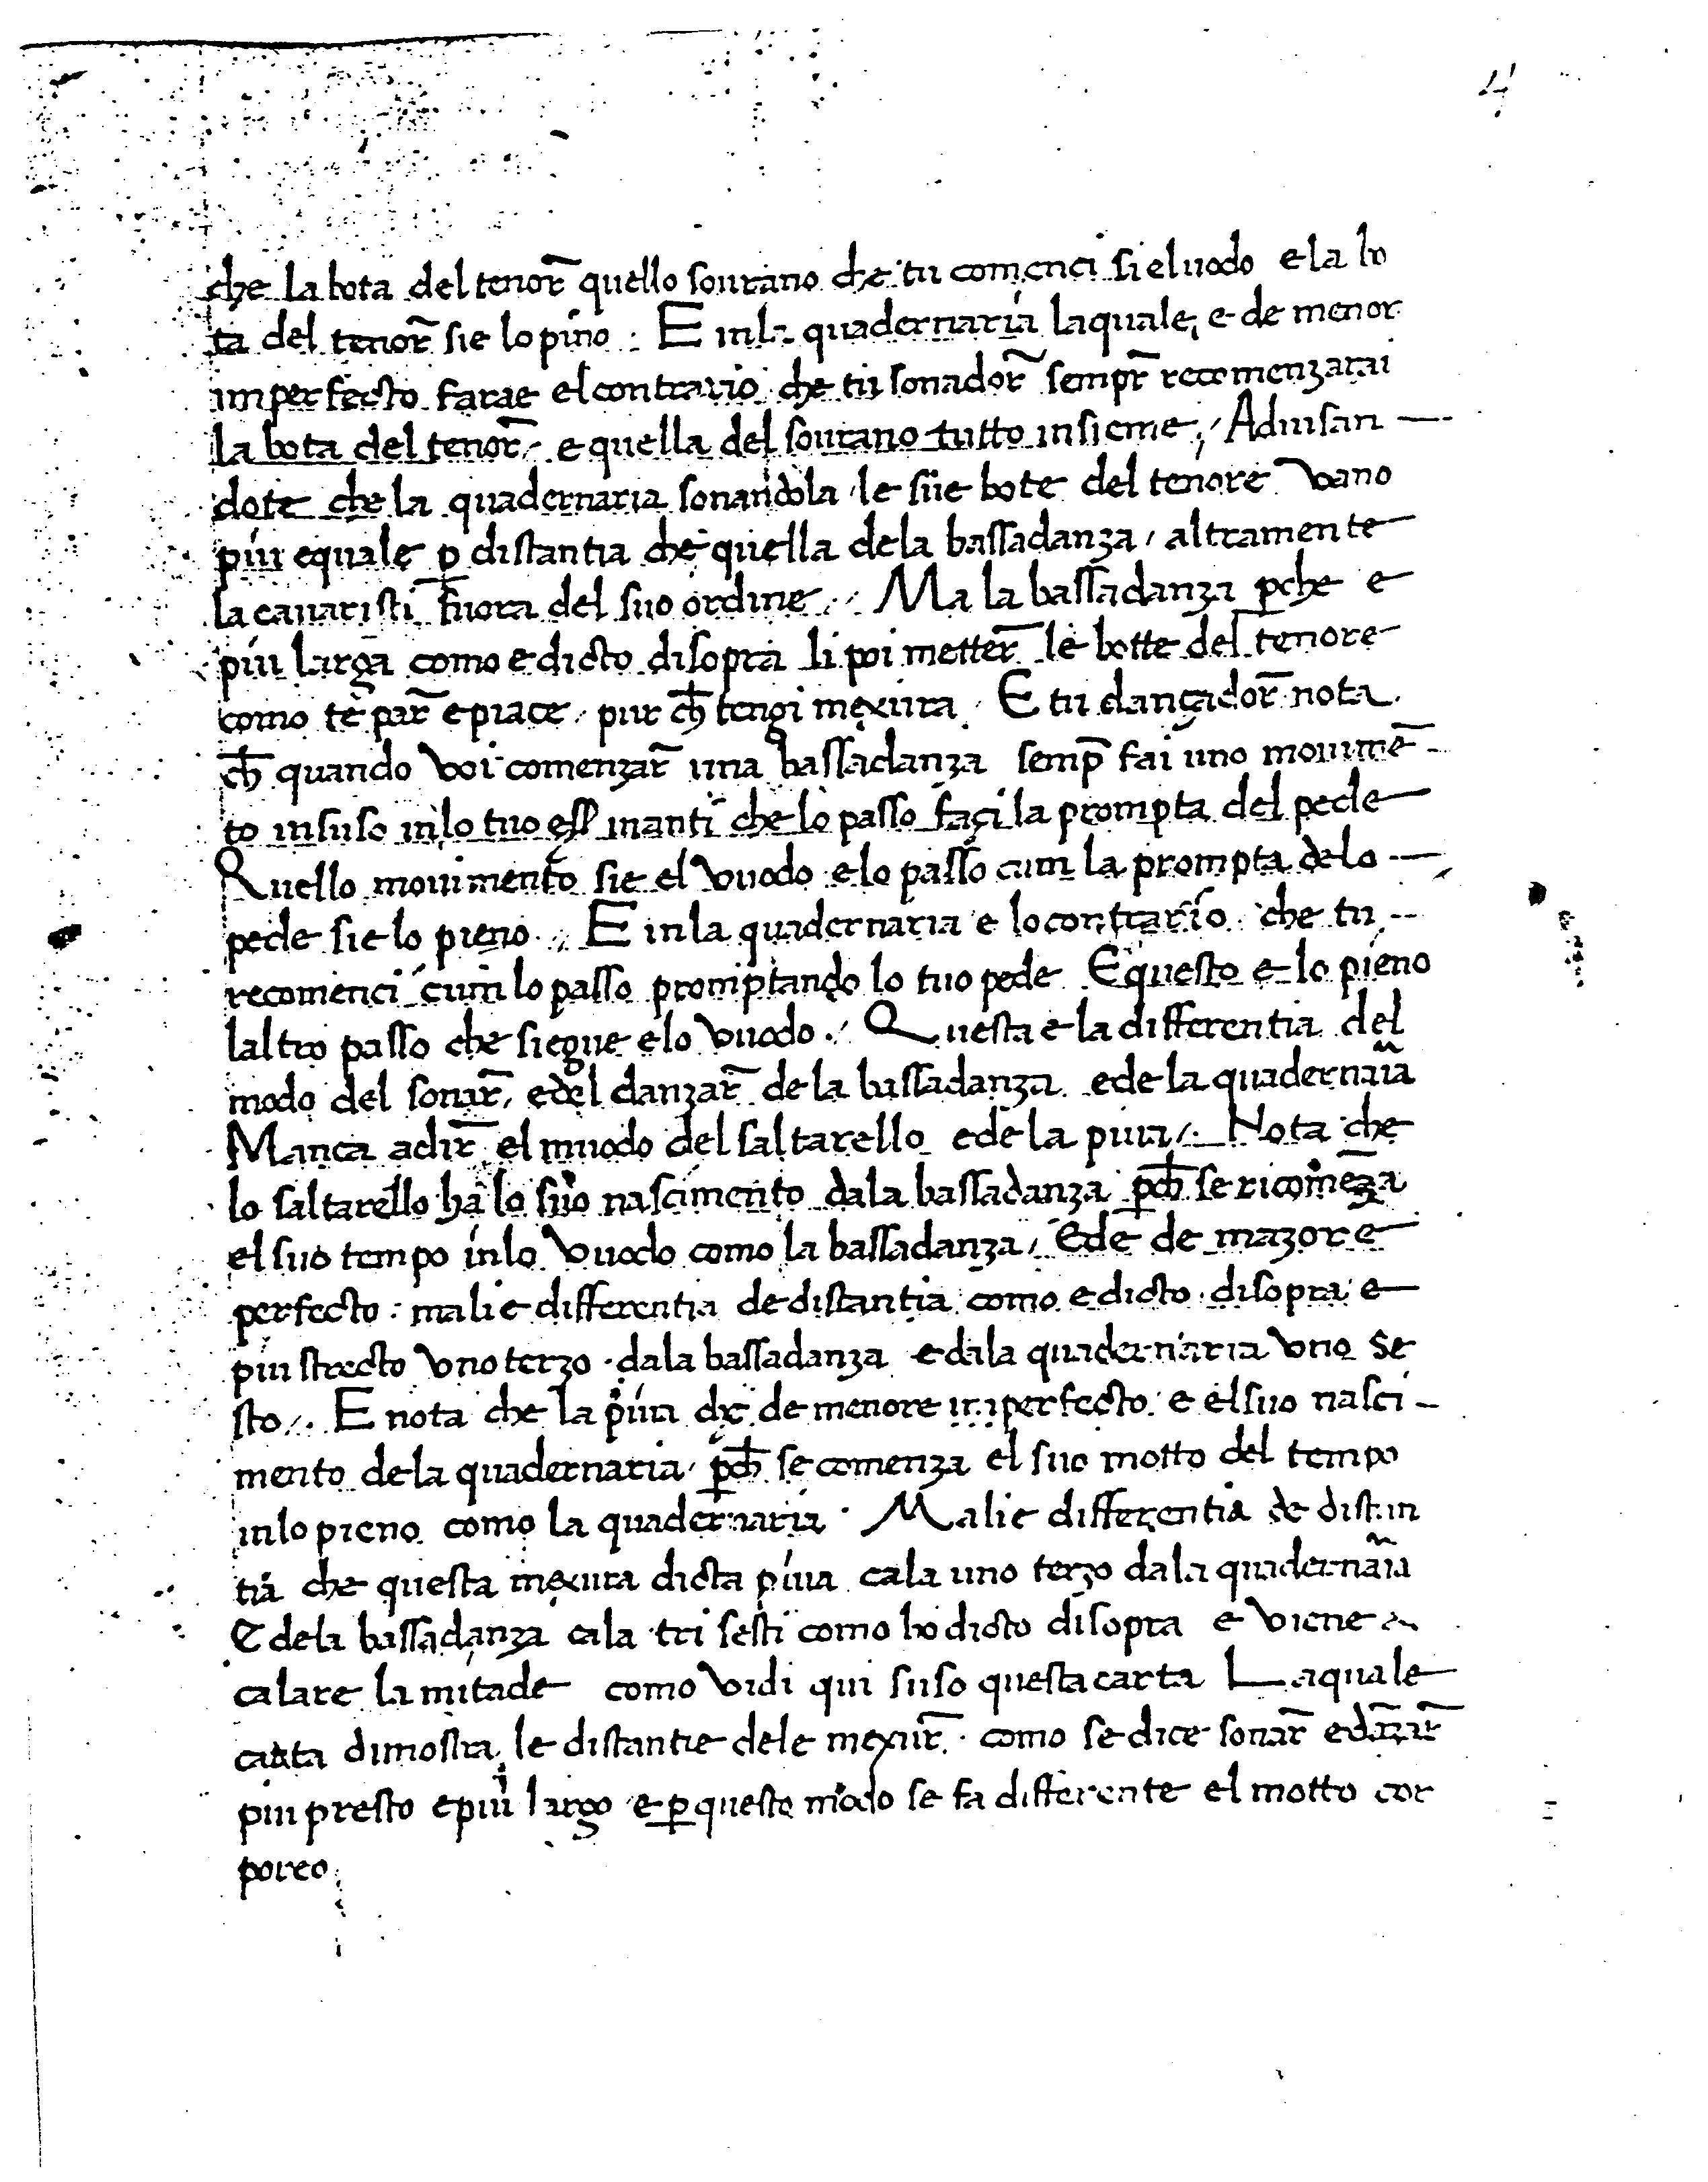 4
che la bota del tenor̄ quello sourano che tu comenci si el uodo e la bo
ta del tenor̄ sie lo pino . E in la quadernaria laquale, e de menor
imperfecto farae el contrario che tu sonador̄ sempr̄ recomenzarai
la bota del tenor̄, e quella del sourano tutto insieme, / Aduisan —
dote che la quadernaria sonandola / le sue bote del tenore vano
piu equale ꝑ distantia che quella dela bassadanza / altramente
la cauaristi fuora del suo ordine // Ma la bassadanza ꝑche e
piu larga como e dicto disopra li poi metter̄ le botte del tenore
como te par̄ e piace / pur ch̄ tengi mexura / E tu dançador̄ nota
ch̄ quando voi comenzar̄ una bassadanza semp̄ fai uno mouimē
to insuso in lo tuo eẜẜ inanti che lo passo faci la prompta del pede
Quello mouimento sie el vuodo e lo passo cum la prompta delo —
pede sie lo pieno // E in la quadernaria e lo contrario che tu --
recomenci cum lo passo promptando lo tuo pede E questo e lo pieno
laltro passo che siegue e lo vuodo ./ Questa e la differentia del
modo del sonar̄, e del danzar̄ de la bassadanza e de la quadernāia
Manca a dir̄ el muodo del saltarello e de la piua /. Nota che
lo saltarello ha lo suo nascimento dala bassadanza ꝑch̄ se ricomēza
el suo tempo in lo vuodo como la bassadanza / Ede de mazore
perfecto : ma li e differentia de distantia como e dicto disopra e
piu strecto vno terzo . dala bassadanza e dala quadernaria vno se
sto /. E nota che la piua de de menore imperfecto e el suo nasci -
mento de la quadernaria / ꝑch̄ se comenza el suo motto del tempo
in lo pieno como la quadernaria . Ma li e differentia de distan
tia che questa mexura dicta piua cala uno terzo dala quadernāia
E dela bassadanza cala tri sesti como ho dicto disopra e viene a
calare la mitade como vidi qui suso questa carta Laquale
carta dimostra le distantie dele mexur̄ . como se dice sonar̄ e dāzar̄
piu presto e piu largo e ꝑ questo modo se fa differente el motto cor
poreo